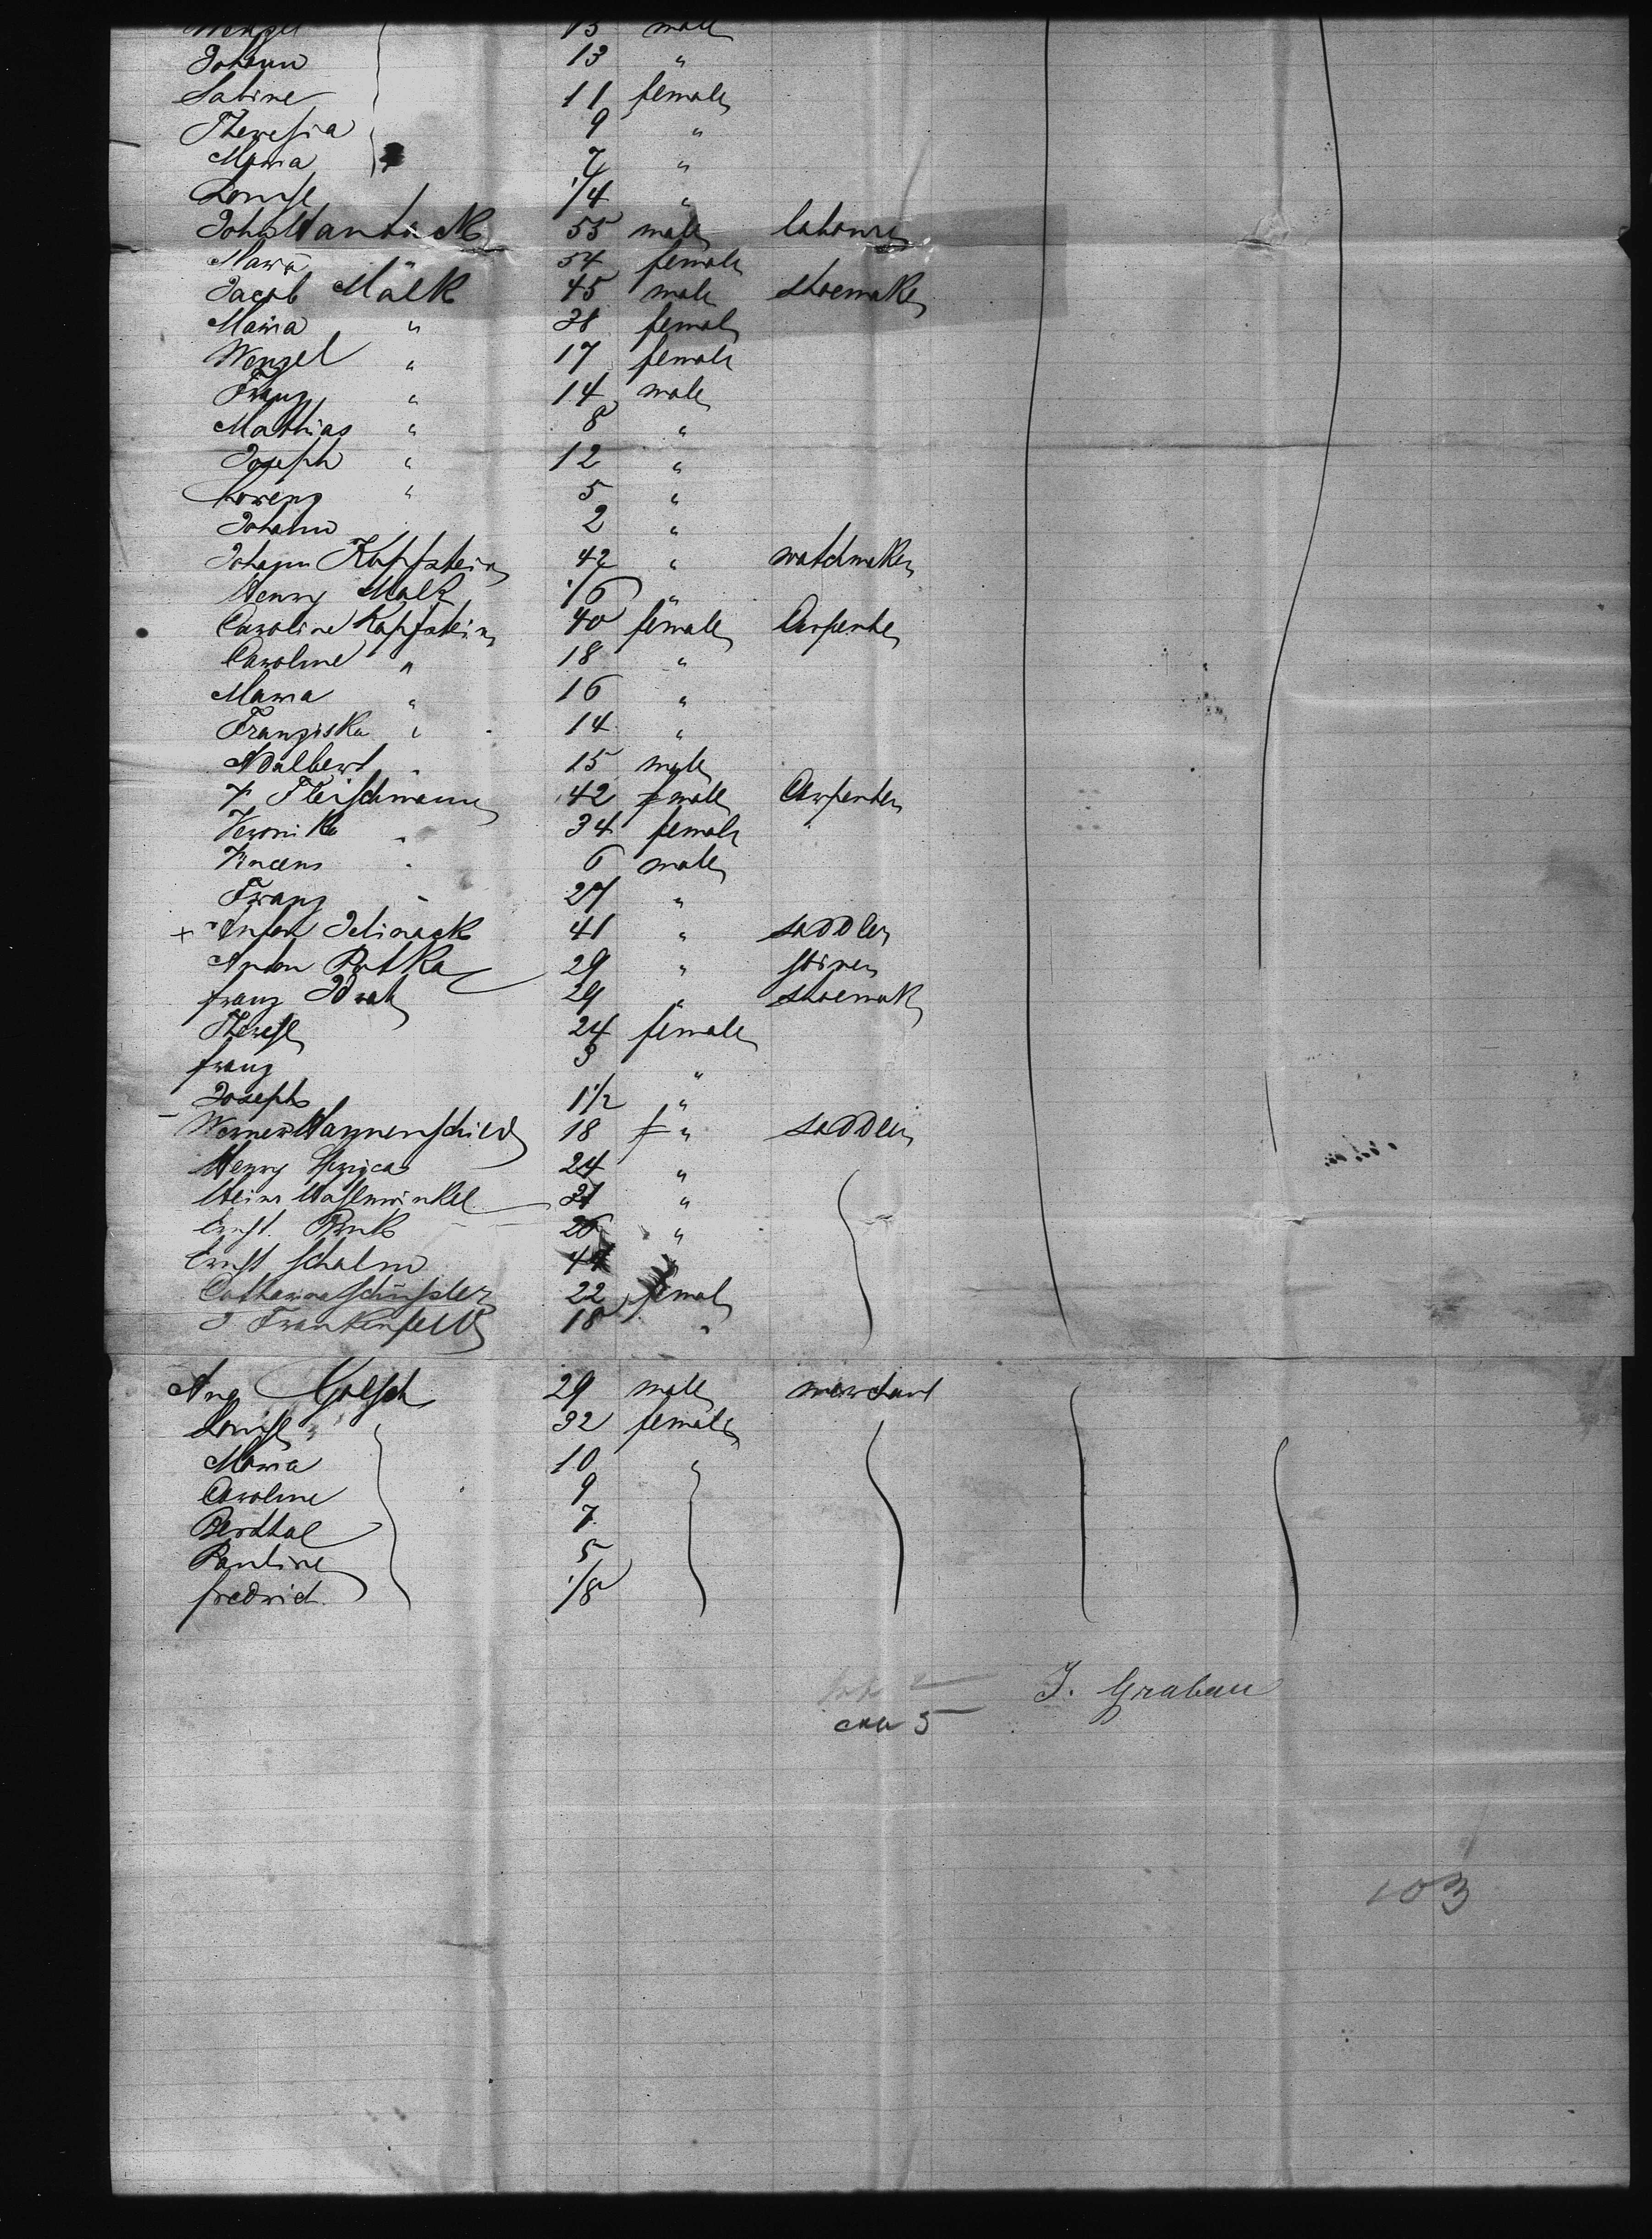 Wenzel 15 male
Johann 13 "
Sabine 11 female
Theresia 9 "
Maria 7 "
Louise 1/4 "
Joh. 55 male laboure
Maria 54 female
Jacob Mälk 45 male shoemaker
Maria " 38 female
Wenzel " 17 female
Franz " 14 male
Mathias " 8 "
Joseph " 12 "
Lorenz " 5 "
Johann 2 "
Johann Kopfstein 42 " watchmaker
Henry Malk 1/6 "
Caroline Kopfstein 40 female Carpenter
Caroline " 18 "
Maria " 16 "
Franziska " 14 "
Adalbert " 15 male
F. Fleischmann 42 male Carpenter
Veronika " 34 female
" 6 male
Franz " 27 "
+ Anton 41 " saddler
Anton 29 "
franz 29 " shoemak
Therese 24 female
franz 3 "
Joseph 1 1/2 "
Werner Wannenschied 18 " saddler
Henry 24 "
Hein Hasenwinkel 21 "
Ernst 26 "
Ernst Schalm 44 "
Catharina Schüssler 22 female
J Frankenfeld 18 "
Aug Golsch 29 male merchant
Louise " 32 female
Maria 10 "
Caroline 9
Berthal 7
Pauline 5
fredrich 1/8
J. Grabau
5
103